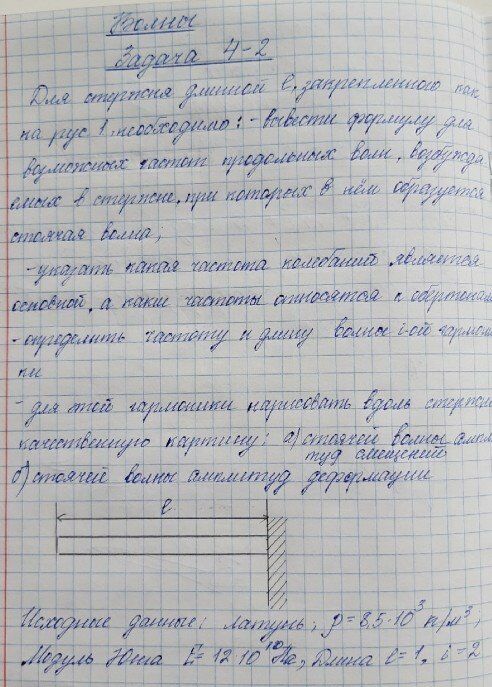 Волны
Задача 4-2
Для стержня длиной l, закрепленного как
на рус 1, необходимо: - вывести формулу для
возможных частот продольных волн, возбужда
емых в стержне, при которых в нём образуется
стоячая волна;
- указать какая частота колебаний является
основной, а какие частоты относятся к обертонам
- определить частоту и длину волны i-ой гармони
ки
- для этой гармоники нарисовать вдоль стержня
качественную картину: а) стоячей волны ампли
туд смещений
б) стоячей волны амплитуд деформации
l
Исходные данные: латунь, ρ = 8,5·10³ кг/м³;
Модуль Юнга E = 12·10¹⁰ Па; Длина l = 1, i = 2